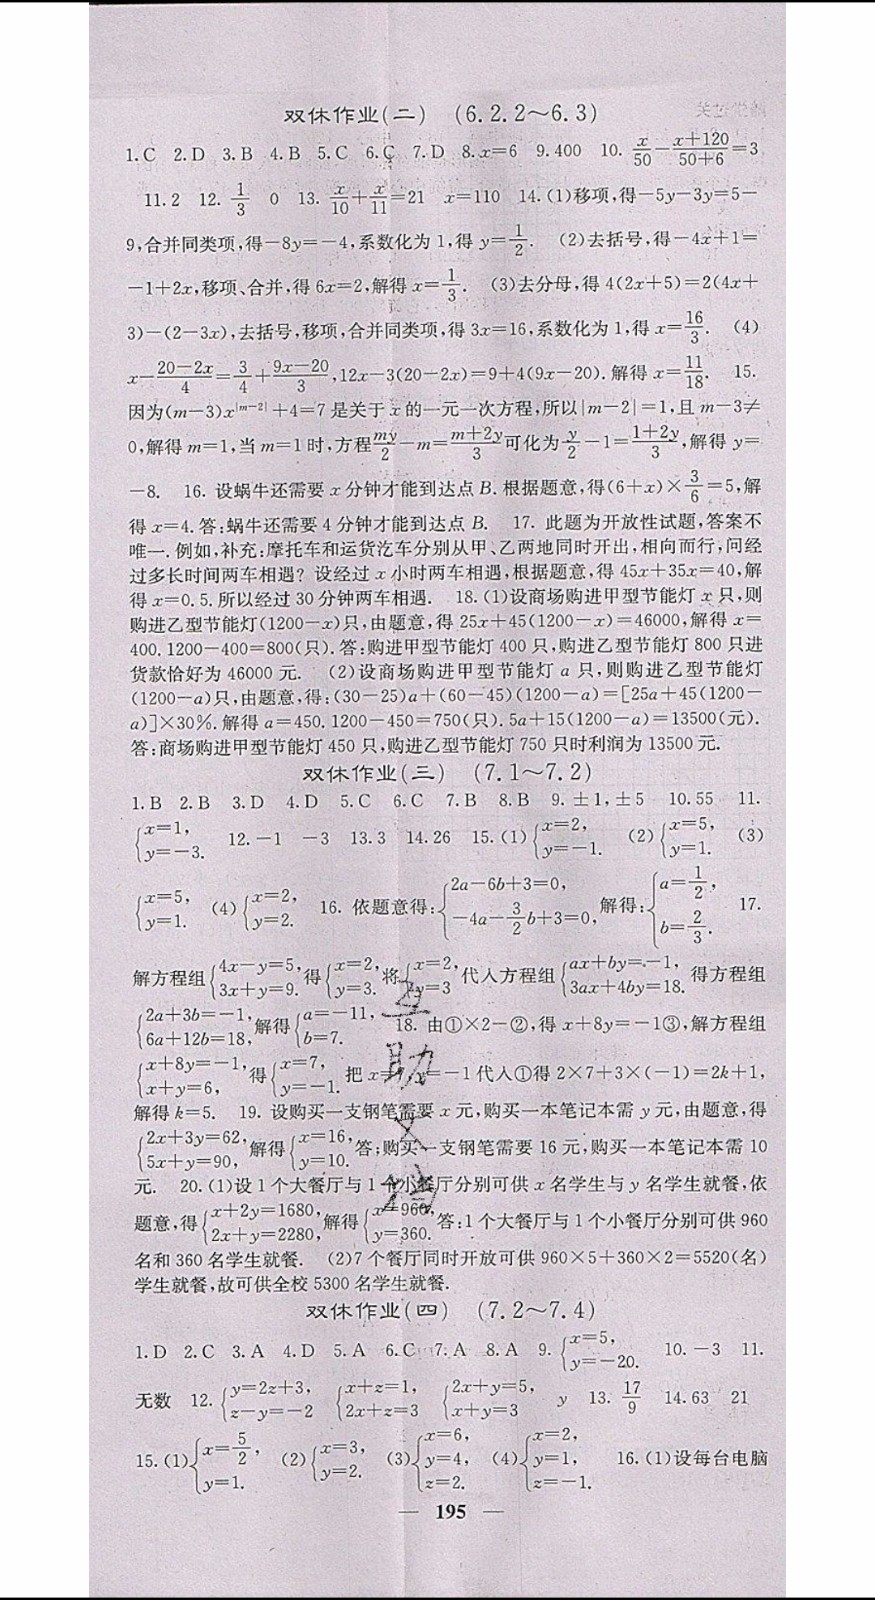 双休作业(二) (6.2.2～6.3)
1.C 2.D 3.B 4.B 5.C 6.C 7.D 8.x=6 9.400 10. x/50-(x+120)/(50+6)=3
11.2 12. 1/3 0 13. x/10+x/11=21 x=110 14.(1)移项,得-5y-3y=5-
9,合并同类项,得-8y=-4,系数化为1,得 y=1/2. (2)去括号,得-4x+1=
-1+2x,移项、合并,得 6x=2,解得 x=1/3. (3)去分母,得 4(2x+5)=2(4x+
3)-(2-3x),去括号,移项,合并同类项,得 3x=16,系数化为1,得 x=16/3. (4)
x-(20-2x)/4=3/4+(9x-20)/3,12x-3(20-2x)=9+4(9x-20).解得 x=11/18. 15.
因为(m-3)x^|m-2|+4=7是关于x的一元一次方程,所以|m-2|=1,且m-3≠
0,解得m=1,当m=1时,方程my/2-m=(m+2y)/3可化为y/2-1=(1+2y)/3,解得 y=
-8. 16. 设蜗牛还需要x分钟才能到达点B.根据题意,得(6+x)×3/6=5,解
得x=4.答:蜗牛还需要4分钟才能到达点B. 17. 此题为开放性试题,答案不
唯一.例如,补充:摩托车和运货汽车分别从甲、乙两地同时开出,相向而行,问经
过多长时间两车相遇? 设经过x小时两车相遇,根据题意,得 45x+35x=40,解
得x=0.5.所以经过30分钟两车相遇. 18.(1)设商场购进甲型节能灯x只,则
购进乙型节能灯(1200-x)只,由题意,得 25x+45(1200-x)=46000,解得x=
400.1200-400=800(只).答:购进甲型节能灯400只,购进乙型节能灯800只进
货款恰好为46000元. (2)设商场购进甲型节能灯a只,则购进乙型节能灯
(1200-a)只,由题意,得:(30-25)a+(60-45)(1200-a)=[25a+45(1200-
a)]×30%.解得a=450.1200-450=750(只).5a+15(1200-a)=13500(元).
答:商场购进甲型节能灯450只,购进乙型节能灯750只时利润为13500元.
双休作业(三) (7.1～7.2)
1.B 2.B 3.D 4.D 5.C 6.C 7.B 8.B 9.±1,±5 10.55 11.
{x=1, y=-3. 12.-1 -3 13.3 14.26 15.(1){x=2, y=-1. (2){x=5, y=1. (3)
{x=5, y=1. (4){x=2, y=2. 16. 依题意得:{2a-6b+3=0, -4a-3/2b+3=0,解得:{a=1/2, b=2/3. 17.
解方程组{4x-y=5, 3x+y=9.得{x=2, y=3.将{x=2, y=3代人方程组{ax+by=-1, 3ax+4by=18.得方程组
{2a+3b=-1, 6a+12b=18,解得{a=-11, b=7. 18. 由①×2-②,得x+8y=-1③,解方程组
{x+8y=-1, x+y=6,得{x=7, y=-1.把x=7,y=-1代人①得2×7+3×(-1)=2k+1,
解得k=5. 19. 设购买一支钢笔需要x元,购买一本笔记本需y元,由题意,得
{2x+3y=62, 5x+y=90,解得{x=16, y=10.答:购买一支钢笔需要16元,购买一本笔记本需10
元. 20.(1)设1个大餐厅与1个小餐厅分别可供x名学生与y名学生就餐,依
题意,得{x+2y=1680, 2x+y=2280,解得{x=960, y=360.答:1个大餐厅与1个小餐厅分别可供960
名和360名学生就餐. (2)7个餐厅同时开放可供960×5+360×2=5520(名)
学生就餐,故可供全校5300名学生就餐.
双休作业(四) (7.2～7.4)
1.D 2.C 3.A 4.D 5.A 6.C 7.A 8.A 9.{x=5, y=-20. 10.-3 11.
无数 12.{y=2z+3, z-y=-2 {x+z=1, 2x+z=3 {2x+y=5, x+y=3 y 13. 17/9 14.63 21
15.(1){x=5/2, y=1. (2){x=3, y=2. (3){x=6, y=4, z=2. (4){x=2, y=1, z=-1. 16.(1)设每台电脑
— 195 —